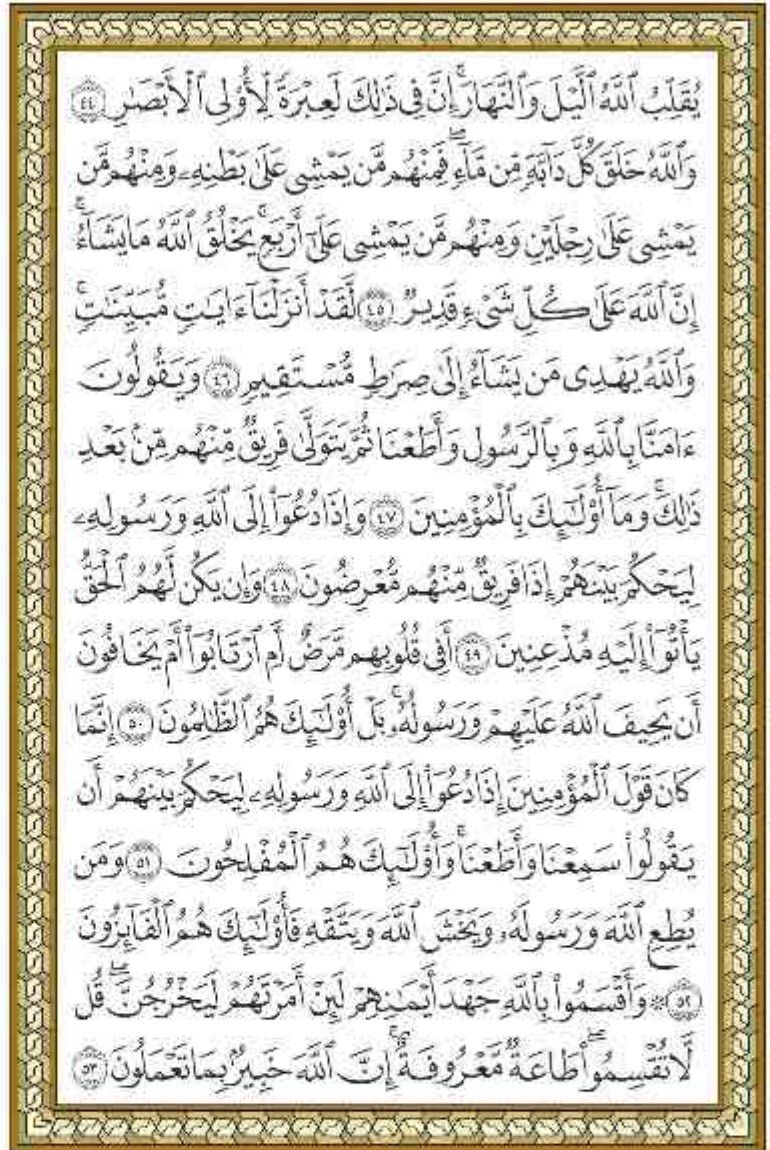 يُقَلِّبُ ٱللَّهُ ٱلَّيْلَ وَٱلنَّهَارَ ۚ إِنَّ فِى ذَٰلِكَ لَعِبْرَةً لِّأُو۟لِى ٱلْأَبْصَـٰرِ ٤٤
وَٱللَّهُ خَلَقَ كُلَّ دَآبَّةٍ مِّن مَّآءٍ ۖ فَمِنْهُم مَّن يَمْشِى عَلَىٰ بَطْنِهِۦ وَمِنْهُم مَّن
يَمْشِى عَلَىٰ رِجْلَيْنِ وَمِنْهُم مَّن يَمْشِى عَلَىٰٓ أَرْبَعٍ ۚ يَخْلُقُ ٱللَّهُ مَا يَشَآءُ ۚ
إِنَّ ٱللَّهَ عَلَىٰ كُلِّ شَىْءٍ قَدِيرٌ ٤٥ لَّقَدْ أَنزَلْنَآ ءَايَـٰتٍ مُّبَيِّنَـٰتٍ ۚ
وَٱللَّهُ يَهْدِى مَن يَشَآءُ إِلَىٰ صِرَٰطٍ مُّسْتَقِيمٍ ٤٦ وَيَقُولُونَ
ءَامَنَّا بِٱللَّهِ وَبِٱلرَّسُولِ وَأَطَعْنَا ثُمَّ يَتَوَلَّىٰ فَرِيقٌ مِّنْهُم مِّنۢ بَعْدِ
ذَٰلِكَ ۚ وَمَآ أُو۟لَـٰٓئِكَ بِٱلْمُؤْمِنِينَ ٤٧ وَإِذَا دُعُوٓا۟ إِلَى ٱللَّهِ وَرَسُولِهِۦ
لِيَحْكُمَ بَيْنَهُمْ إِذَا فَرِيقٌ مِّنْهُم مُّعْرِضُونَ ٤٨ وَإِن يَكُن لَّهُمُ ٱلْحَقُّ
يَأْتُوٓا۟ إِلَيْهِ مُذْعِنِينَ ٤٩ أَفِى قُلُوبِهِم مَّرَضٌ أَمِ ٱرْتَابُوٓا۟ أَمْ يَخَافُونَ
أَن يَحِيفَ ٱللَّهُ عَلَيْهِمْ وَرَسُولُهُۥ ۚ بَلْ أُو۟لَـٰٓئِكَ هُمُ ٱلظَّـٰلِمُونَ ٥٠ إِنَّمَا
كَانَ قَوْلَ ٱلْمُؤْمِنِينَ إِذَا دُعُوٓا۟ إِلَى ٱللَّهِ وَرَسُولِهِۦ لِيَحْكُمَ بَيْنَهُمْ أَن
يَقُولُوا۟ سَمِعْنَا وَأَطَعْنَا ۚ وَأُو۟لَـٰٓئِكَ هُمُ ٱلْمُفْلِحُونَ ٥١ وَمَن
يُطِعِ ٱللَّهَ وَرَسُولَهُۥ وَيَخْشَ ٱللَّهَ وَيَتَّقْهِ فَأُو۟لَـٰٓئِكَ هُمُ ٱلْفَآئِزُونَ
٥٢ ۞ وَأَقْسَمُوا۟ بِٱللَّهِ جَهْدَ أَيْمَـٰنِهِمْ لَئِنْ أَمَرْتَهُمْ لَيَخْرُجُنَّ ۖ قُل
لَّا تُقْسِمُوا۟ ۖ طَاعَةٌ مَّعْرُوفَةٌ ۚ إِنَّ ٱللَّهَ خَبِيرٌۢ بِمَا تَعْمَلُونَ ٥٣